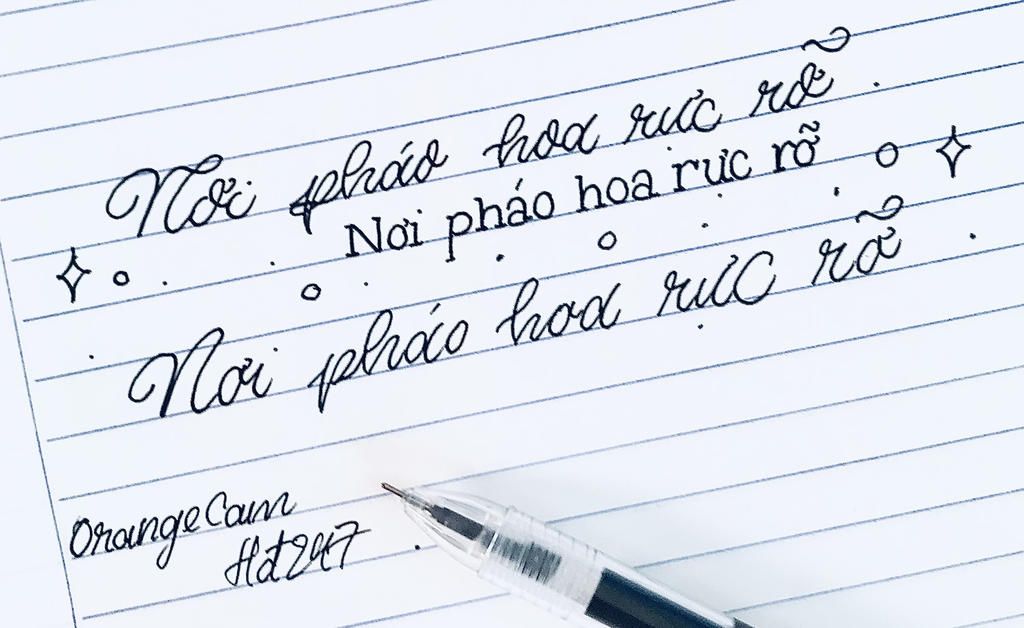 Nơi pháo hoa rực rỡ
Nơi pháo hoa rực rỡ
Nơi pháo hoa rực rỡ
OrangeCam
Hđ247